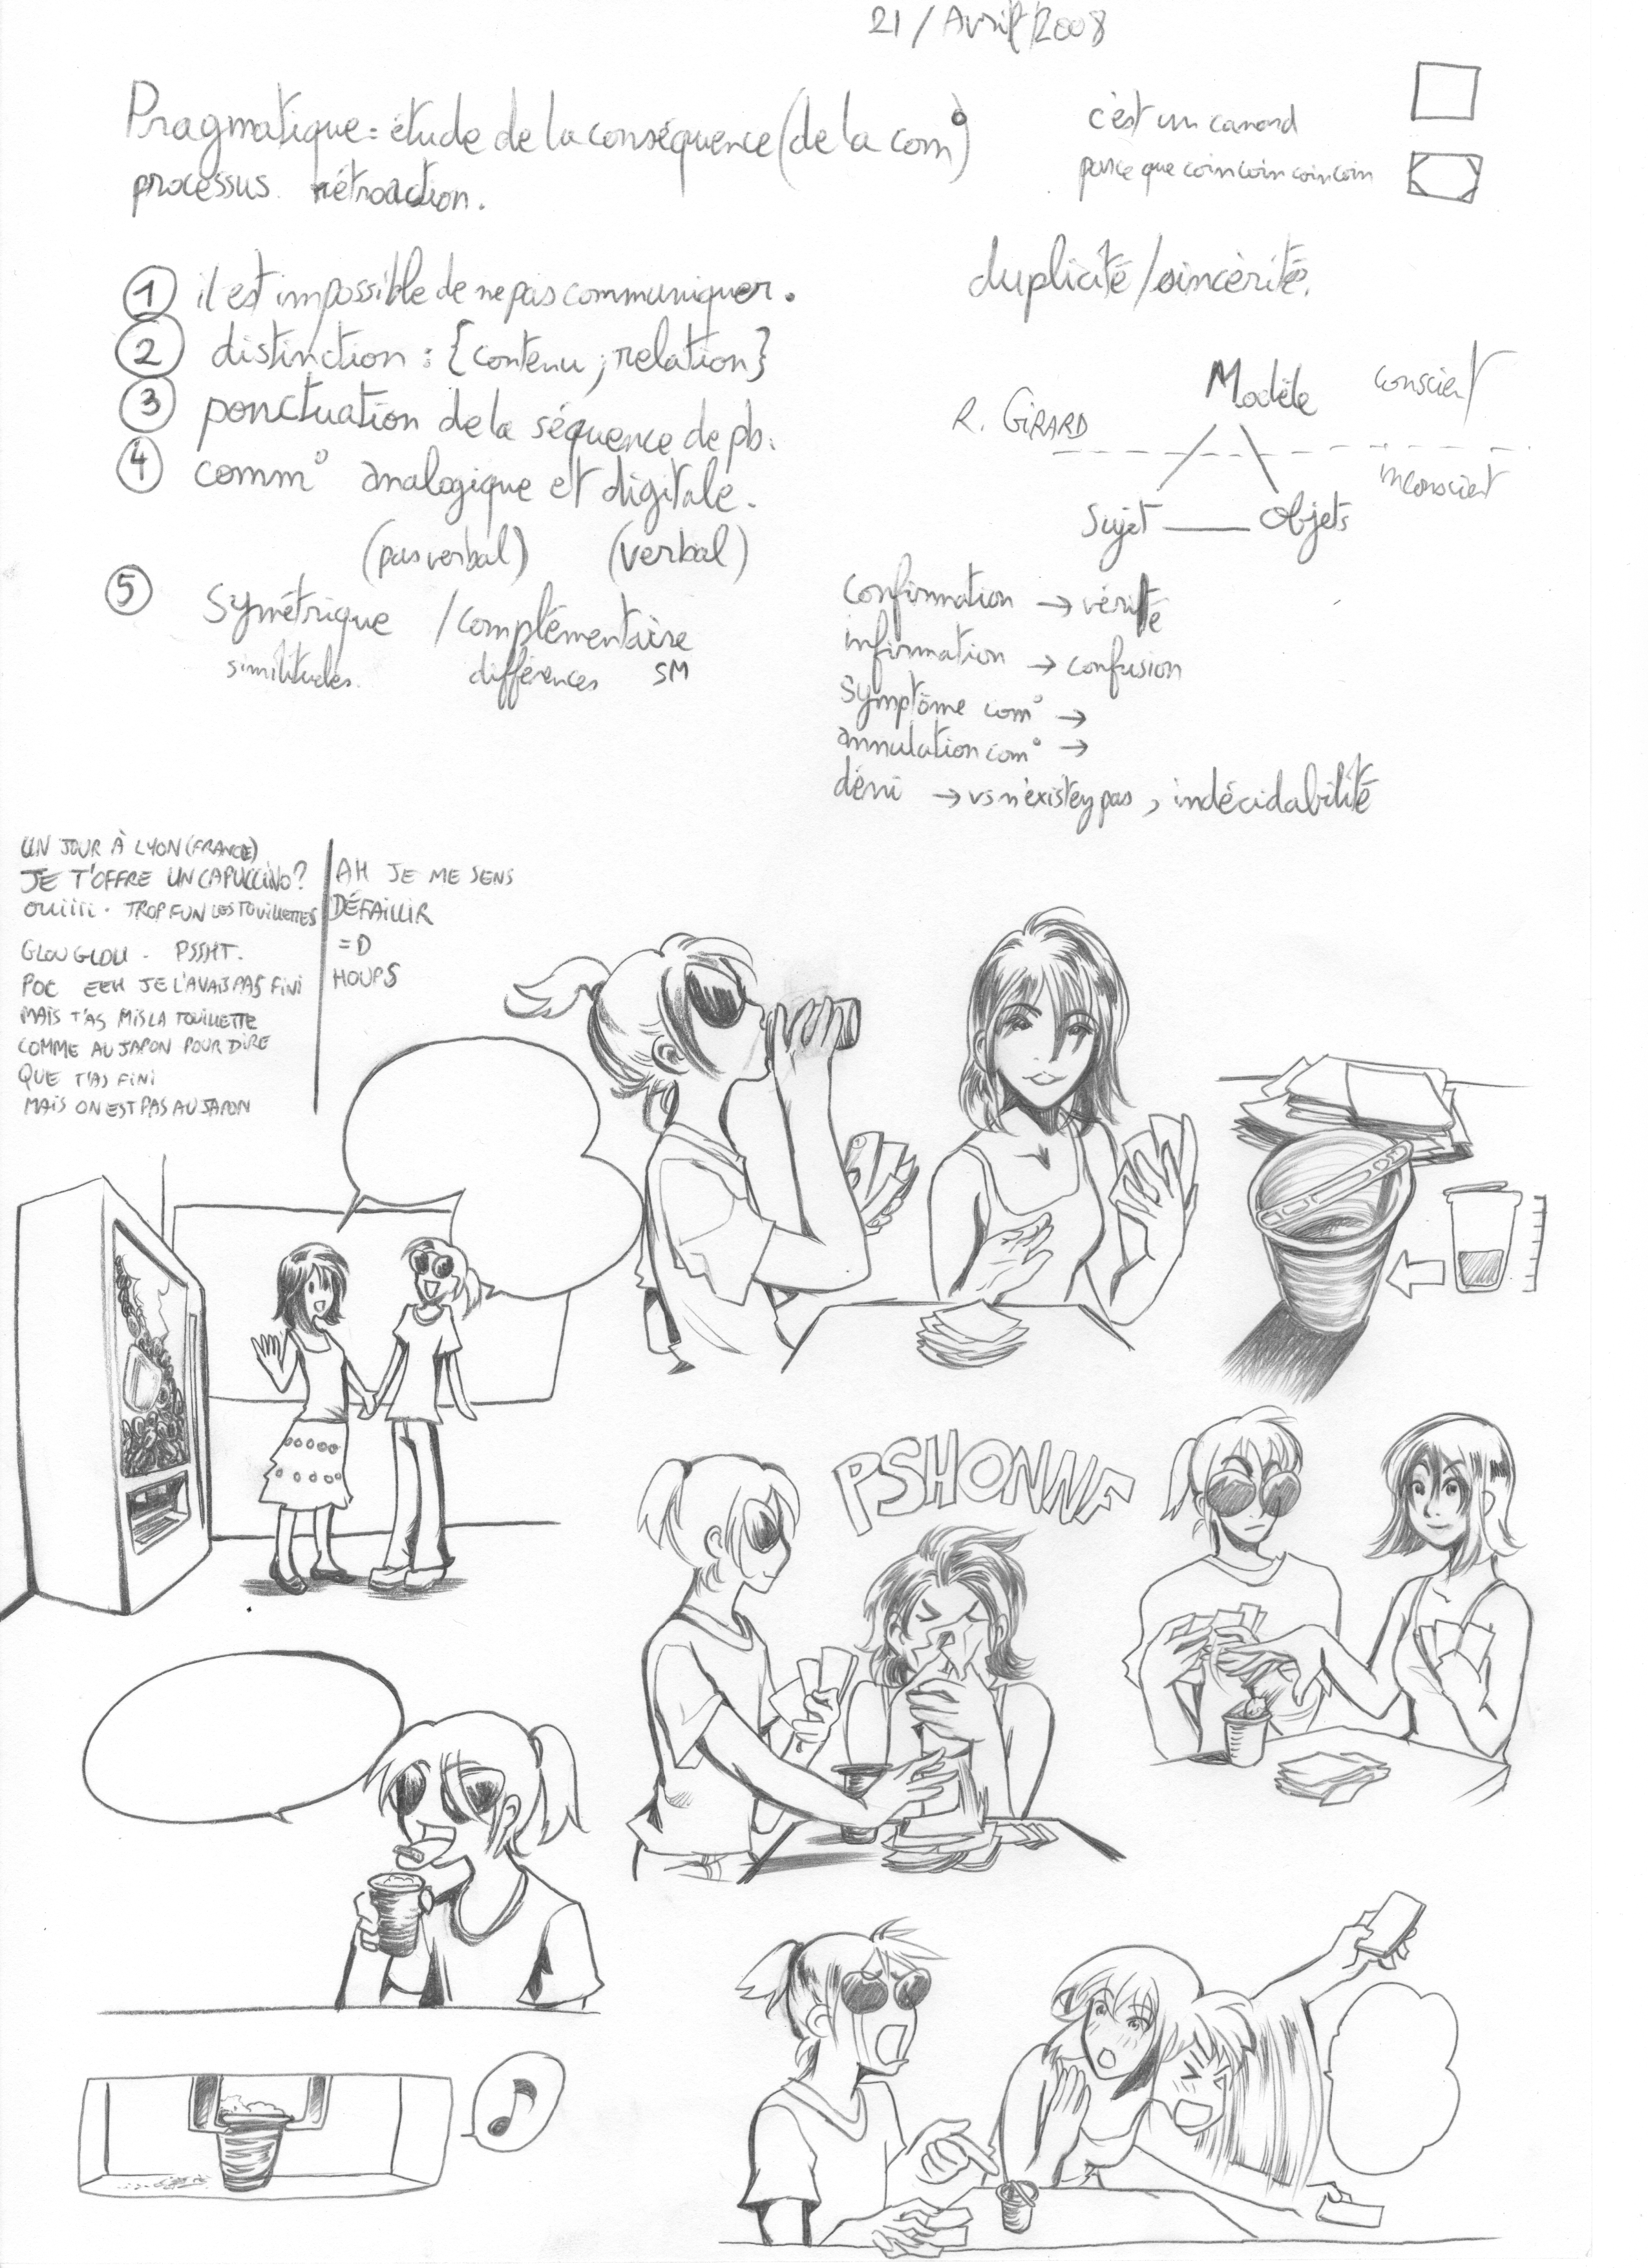 21/Avril/2008
Pragmatique = étude de la conséquence (de la com°)
processus rétroaction.
c'est un canard
parce que coin coin coin coin
① il est impossible de ne pas communiquer.
② distinction : {contenu ; relation}
③ ponctuation de la séquence de pb.
④ comm° analogique et digitale.
(pas verbal) (verbal)
⑤ symétrique / complémentaire
similitudes. différences SM
duplicité/sincérité.
R. GIRARD
Modèle
conscient
inconscient
Sujet — Objets
confirmation → vérité
infirmation → confusion
symptôme com° →
annulation com° →
déni → vs n'existez pas, indécidabilité
UN JOUR À LYON (FRANCE)
JE T'OFFRE UN CAPUCCINO?
OUIIII. TROP FUN LES TOUILLETTES
GLOU GLOU - PSSHT.
POC EEH JE L'AVAIS PAS FINI
MAIS T'AS MIS LA TOUILLETTE
COMME AU JAPON POUR DIRE
QUE T'AS FINI
MAIS ON EST PAS AU JAPON
AH JE ME SENS
DÉFAILLIR
=D
HOUPS
PSHONNF